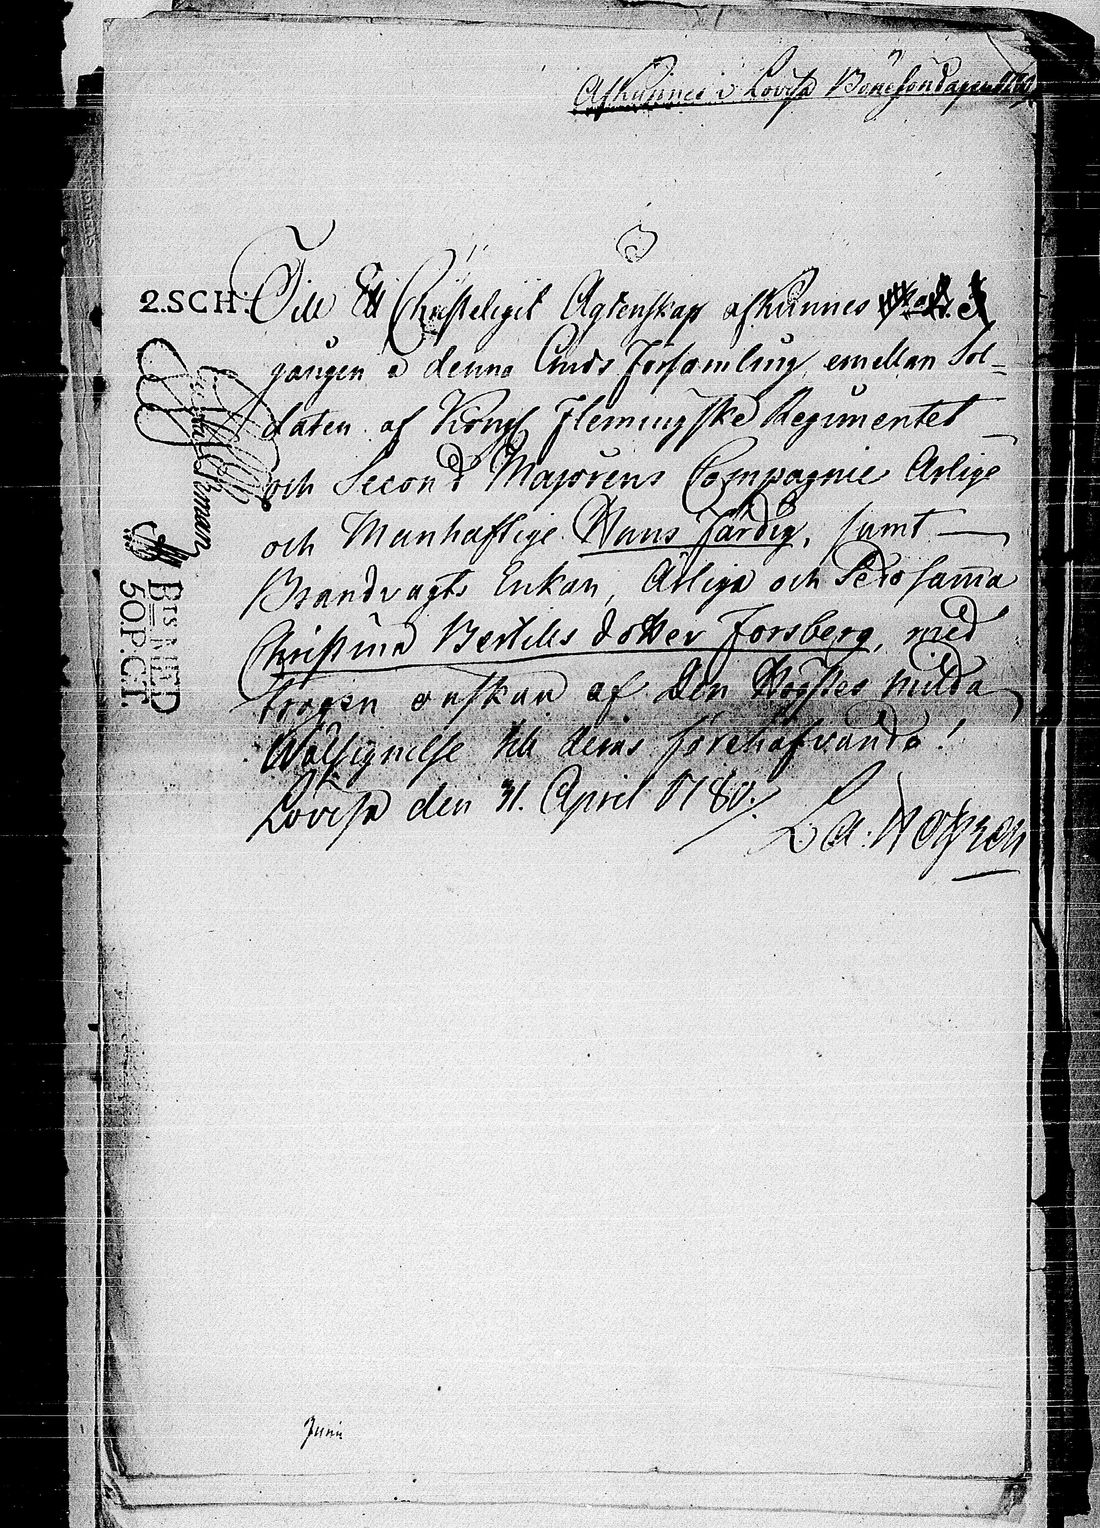 Afkunnes i Lovisa Bönesöndagen
3
2.SCH: Till Ett Christeligit Ägtenskap afkunnes
gången i denna Guds Församling, emellan Sol-
daten af Kongl. Flemingske Regimentet
och Second Majorens Compagnie Ärlige
och Manhaftige Hans Färdig, samt
Brandvagts Enkan, Ärliga och Sedosamma
Christina Bertils dotter Forsberg, med
trogen önskan af den Högstes milda
Wälsignelse till deras förehafvande!
Lovisa den 31. April 1780.
BEVILLN
50.P.CT.
Junii